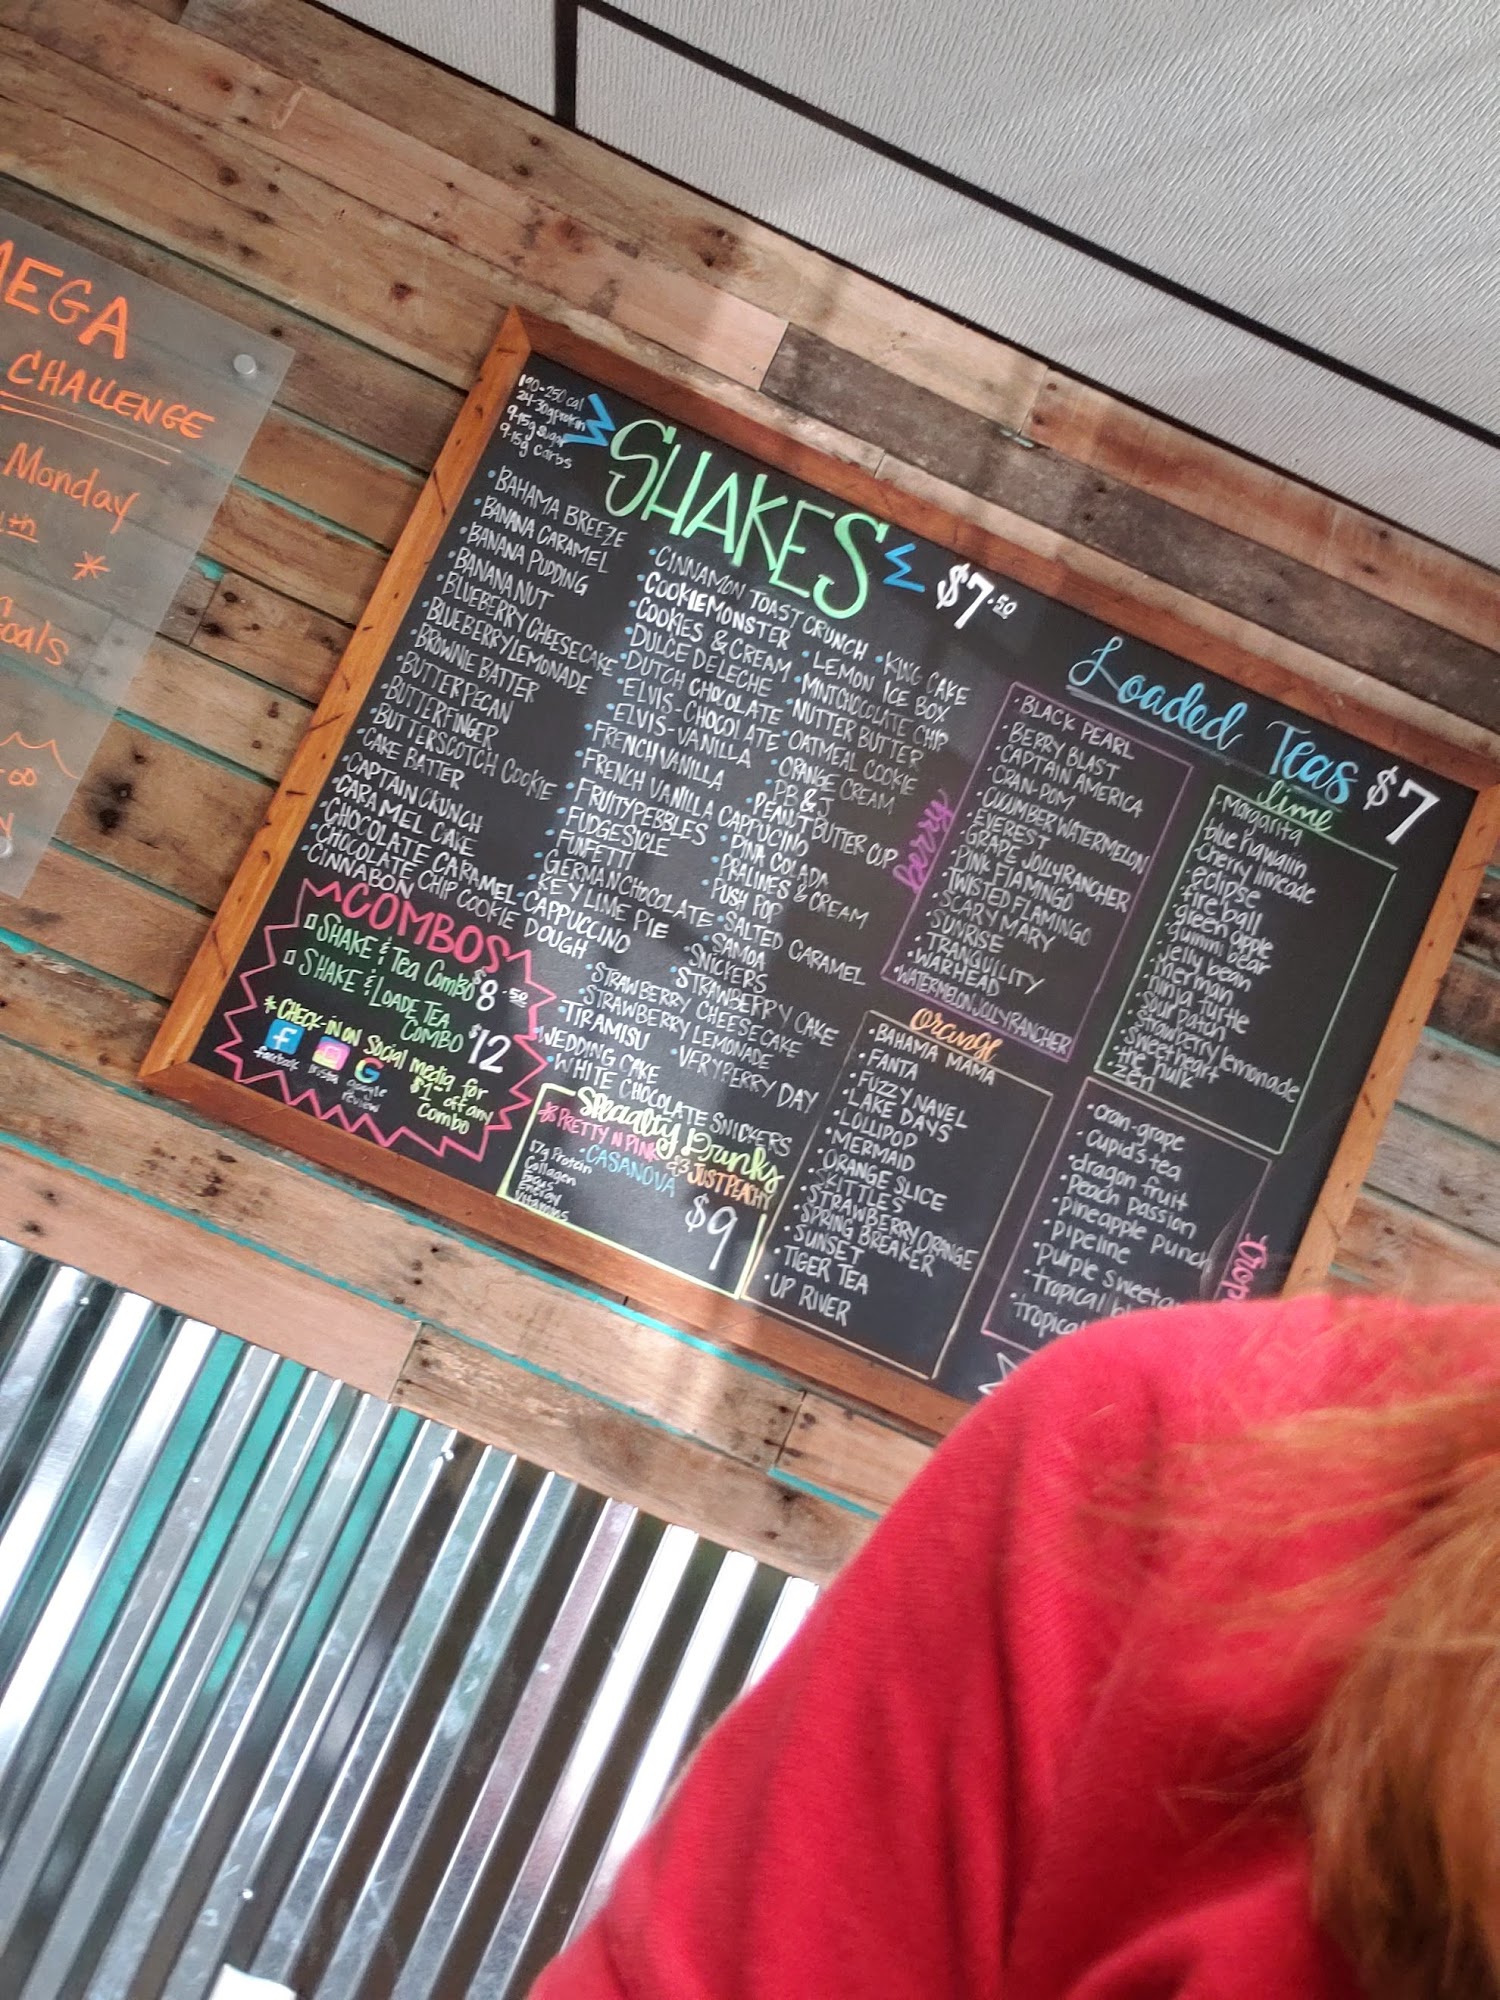 MEGA
CHALLENGE
Monday
*
Goals
190-250 cal
24-30g protein
9-15g sugar
9-15g carbs
SHAKES $7.50
• BAHAMA BREEZE
• BANANA CARAMEL
• BANANA PUDDING
• BANANA NUT
• BLUEBERRY CHEESECAKE
• BLUEBERRY LEMONADE
• BROWNIE BATTER
• BUTTER PECAN
• BUTTERFINGER
• BUTTERSCOTCH COOKIE
• CAKE BATTER
• CAPTAIN CRUNCH
• CARAMEL CAKE
• CHOCOLATE CARAMEL-CAPPUCCINO
• CHOCOLATE CHIP COOKIE DOUGH
• CINNABON
• CINNAMON TOAST CRUNCH
• COOKIE MONSTER
• COOKIES & CREAM
• DULCE DE LECHE
• DUTCH CHOCOLATE
• ELVIS-CHOCOLATE
• ELVIS-VANILLA
• FRENCH VANILLA
• FRENCH VANILLA CAPPUCINO
• FRUITY PEBBLES
• FUDGESICLE
• FUNFETTI
• GERMAN CHOCOLATE
• KEY LIME PIE
• KING CAKE
• LEMON ICE BOX
• MINT CHOCOLATE CHIP
• NUTTER BUTTER
• OATMEAL COOKIE
• ORANGE CREAM
• PB & J
• PEANUT BUTTER CUP
• PINA COLADA
• PRALINES & CREAM
• PUSH POP
• SALTED CARAMEL
• SAMOA
• SNICKERS
• STRAWBERRY CAKE
• STRAWBERRY CHEESECAKE
• STRAWBERRY LEMONADE
• TIRAMISU • VERY BERRY DAY
• WEDDING CAKE
• WHITE CHOCOLATE SNICKERS
COMBOS
SHAKE & TEA COMBO $8.50
SHAKE & LOADE TEA COMBO $12
* CHECK-IN ON Social media for
$1 off any
Combo
facebook insta google
review
Specialty Drinks
PRETTY N PINK
• CASANOVA & JUST PEACHY
17g Protein
Collagen
Focus
Energy
Vitamins
$9
Loaded Teas $7
Berry
• BLACK PEARL
• BERRY BLAST
• CAPTAIN AMERICA
• CRAN-POM
• CUCUMBER WATERMELON
• EVEREST
• GRAPE JOLLY RANCHER
• PINK FLAMINGO
• TWISTED FLAMINGO
• SCARY MARY
• SUNRISE
• TRANQUILITY
• WARHEAD
• WATERMELON JOLLY RANCHER
lime
• Margarita
• blue hawaiin
• Cherry limeade
• eclipse
• fire ball
• green apple
• gummi bear
• jelly bean
• merman
• ninja turtle
• sour patch
• strawberry lemonade
• sweetheart
• the hulk
• zen
orange
• BAHAMA MAMA
• FANTA
• FUZZY NAVEL
• LAKE DAYS
• LOLLIPOD
• MERMAID
• ORANGE SLICE
• SKITTLES
• STRAWBERRY ORANGE
• SPRING BREAKER
• SUNSET
• TIGER TEA
• UP RIVER
• cran-grape
• Cupid's tea
• dragon fruit
• Peach passion
• pineapple punch
• pipeline
• Purple sweetar
• Tropical
• tropical
Trop